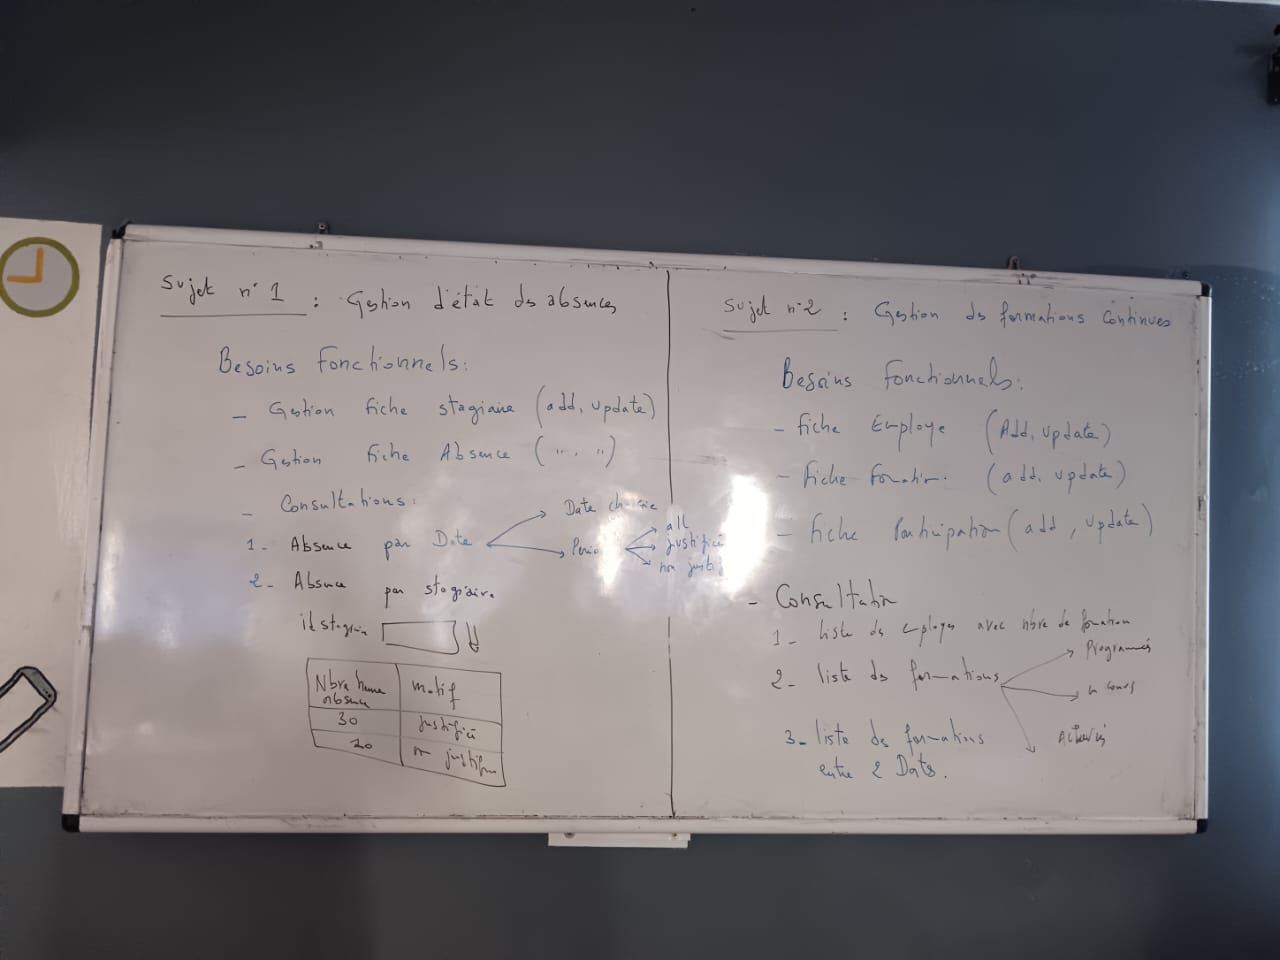 Sujet n° 1 : Gestion d'état des absences
Besoins Fonctionnels:
- Gestion fiche stagiaire (add, update)
- Gestion fiche Absence ( ,, , ,, )
- Consultations :
1- Absence par Date
Date choisie
Periode
all
justifié
non justif
2- Absence par stagiaire
id stagiaire
Nbre heure absence
motif
30 justifié
20 n justifié
Sujet n°2 : Gestion des formations Continues
Besoins Fonctionnels:
- Fiche Employe (Add, update)
- Fiche Formation. (add, update)
- Fiche Participation (add, update)
- Consultation
1- liste des employes avec nbre de formation
2- liste des formations
Programmés
en cours
Achevés
3- liste des formations
entre 2 Dates.